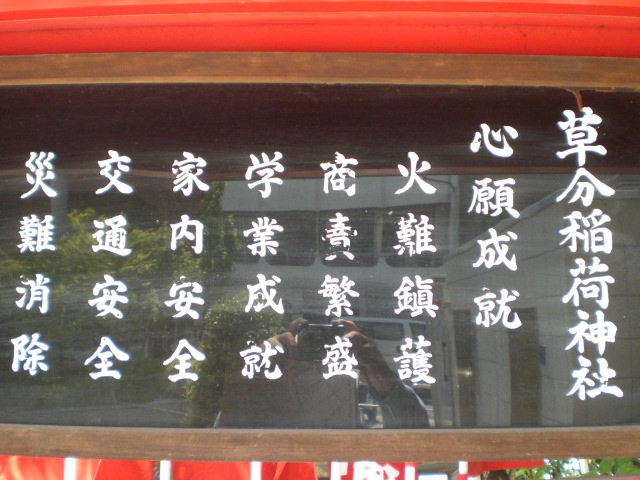 草分稲荷神社
心願成就
火難鎮護
商賣繁盛
学業成就
家内安全
交通安全
災難消除